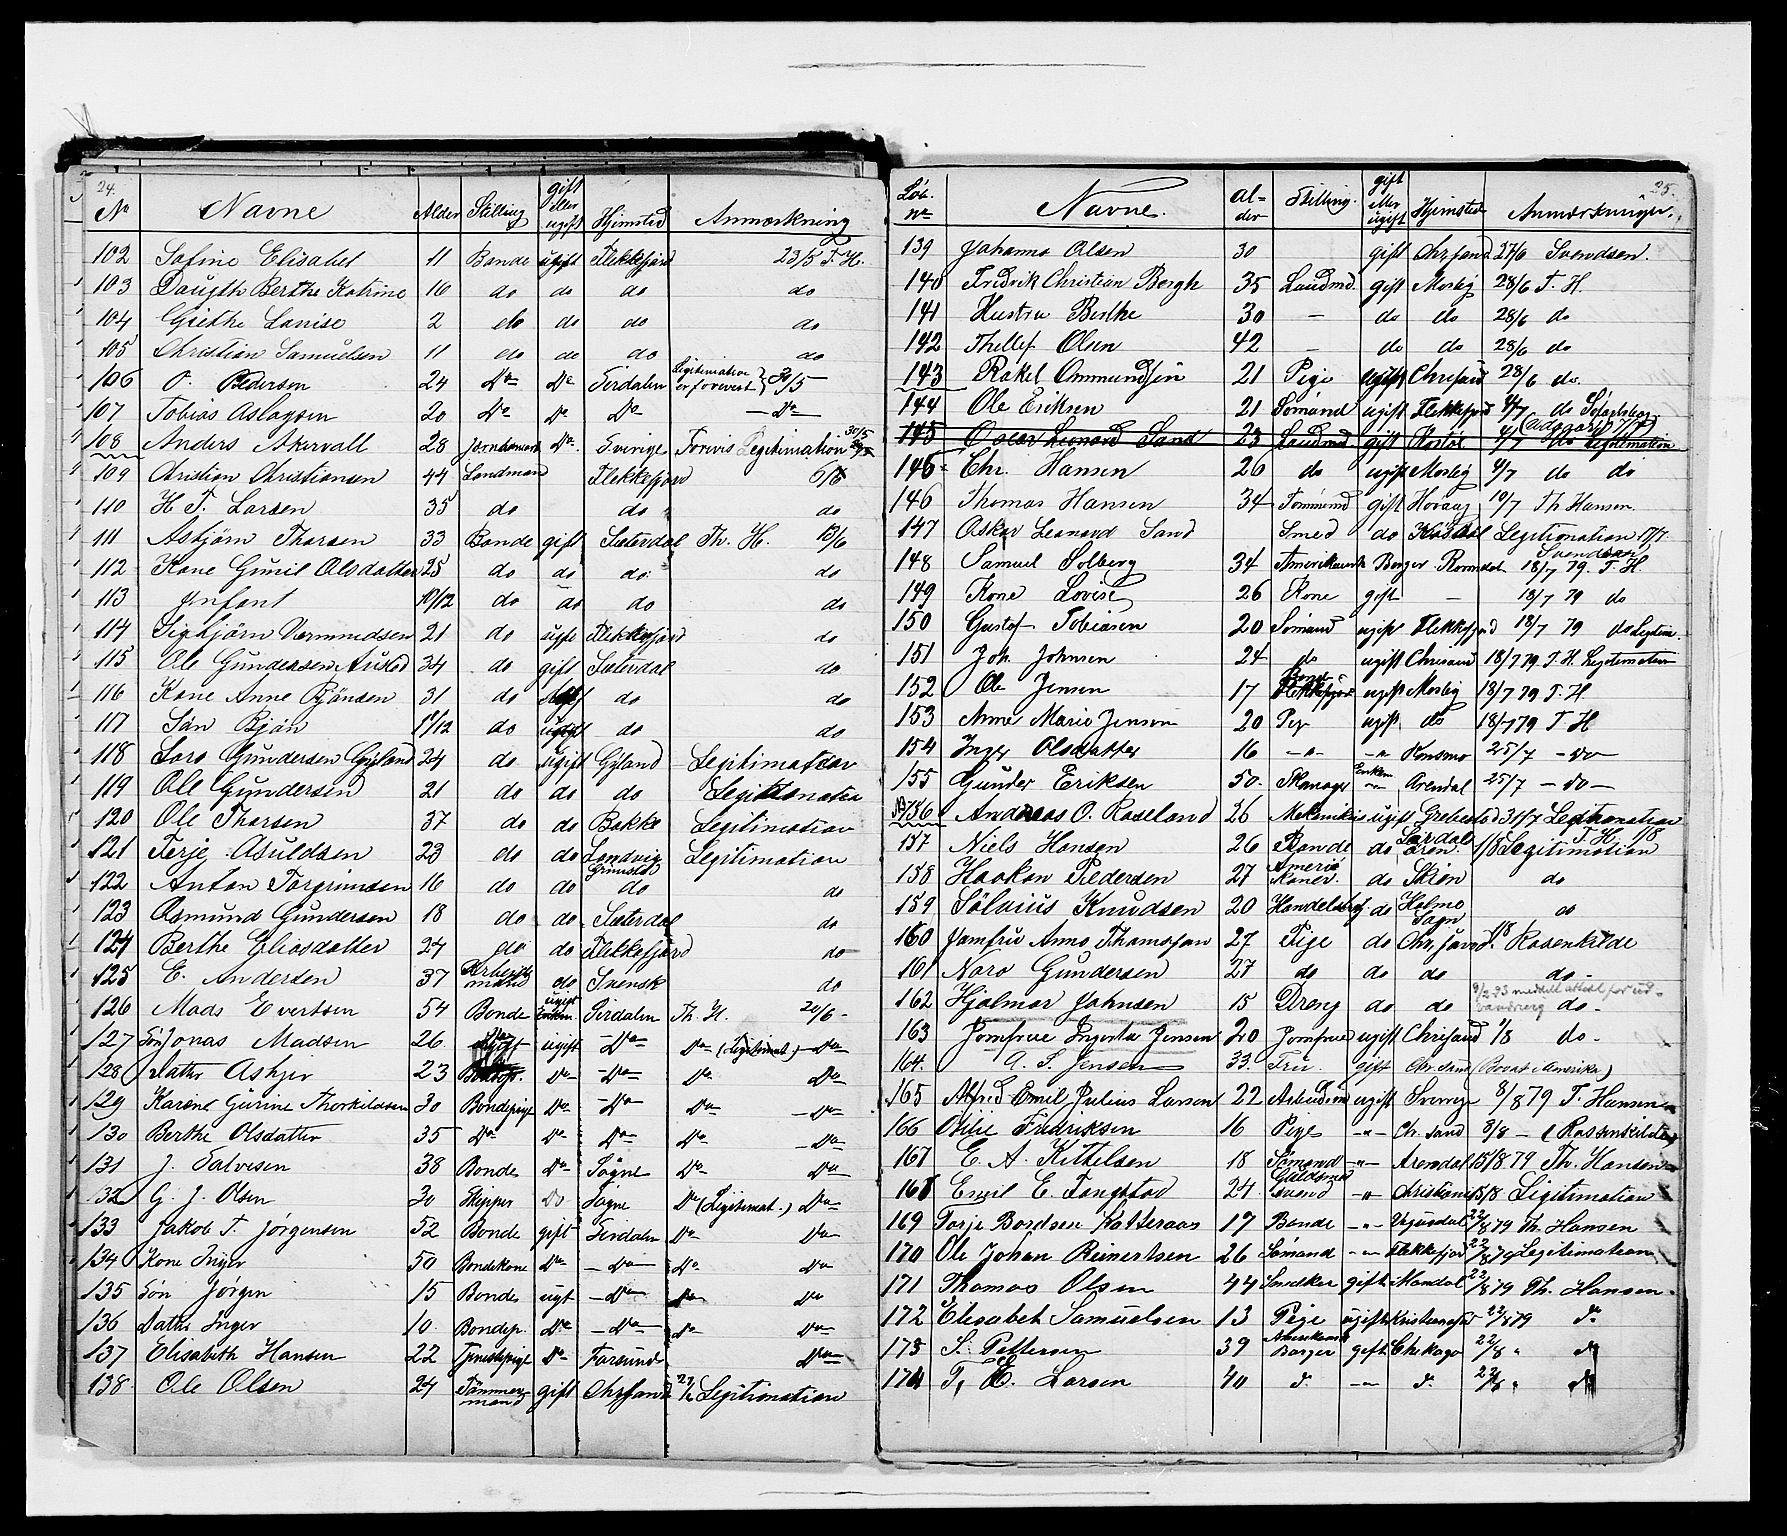 24.
No Navne Alder Stilling gift eller ugift Hjemsted Anmærkning
102 Sofine Elisabet 11 Bonde ugift Flekkefjord 23/5 T. H.
103 Daugth Berthe Katrine 16 do do do do
104 Grethe Lanise 2 do do do do
105 Christian Samuelsen 11 do do do do
106 O. Pedersen 24 Do Do Sirdalen Legitimation er forevist 30/5
107 Tobias Aslagsen 20 Do Do Do Do
108 Anders Akervall 28 Do Sverige Forevis Legitimation 30/5
109 Christian Christiansen 44 Landmand Flekkefjord 6/6
110 H. T. Larsen 35 do do do
111 Asbjörn Tharsen 33 Bonde gift Sætersdal Th. H. 13/6
112 Kone Gunil Olsdatter 25 do do do do
113 Infant 10/12 do do do do
114 Sigbjörn Værmundsen 21 do ugift Flekkefjord do
115 Ole Gundersen Austad 34 do gift Sætersdal do
116 Kone Anne Bjönsen 31 do gift do do
117 Sön Björn 11/12 do ugift do do
118 Lars Gundersen Gyland 24 do ugift Gyland Legitimation
119 Ole Gundersen 21 do do do Legitimation
120 Ole Tharsen 37 do do Bakke Legitimation
121 Terje Asuldsen 23 do do Landvig Grimstad Legitimation
122 Anton Torgrimsen 16 do do do do
123 Asmund Gundersen 18 do do Sætersdal do
124 Berthe Eliasdatter 24 do do Flekkefjord do
125 E. Andersen 37 Arbeidsmand do Svensk do
126 Mads Evertsen 54 Bonde ugift Enkem. Sirdalen Th. H. 20/6
127 Sön Jonas Madsen 26 ugift Do Do (Legitimat.) Do
128 Datter Asbjer 23 Do Do Do Do
129 Karene Gurine Thorkildsen 30 Bondepige Do Do Do Do
130 Berthe Olsdatter 35 Do Do Do Do Do
131 J. Salvesen 38 Bonde Do Sögne Do Do
132 G. J. Olsen 30 Skipper Do Sogne Do (Legitimat.) Do
133 Jakob T. Jørgensen 52 Bonde gift Sirdalen Do Do
134 Kone Inger 50 Bondekone Do Do Do Do
135 Sön Jörgen 15 Bonde ugt Do Do Do
136 Dattr Inger 10 Bondep. Do Do Do Do
137 Elisabeth Hansen 22 Tjenestepige Do Farsund Do
138 Ole Olsen 24 Tömmermand gift Chrsand 27/6 Legitimation
25.
Löb. No Navne. Alder Stilling. gift eller ugift Hjemsted Anmærkninger.
139 Johanna Olsen 30 gift Chrsand 27/6 Svendsen.
140 Fredrik Christian Bergh 35 Landmd. gift Mosby 28/6 T. H.
141 Hustru Berthe 30 – do do 28/6 do
142 Thellef Olsen 42 – do do 28/6 do
143 Rakel Ommundsen 21 Pige ugift Chrsand 28/6 do.
144 Ole Eriksen 21 Sömand ugift Flekkefjord 4/7 do
145 Oscar Leonard Sand 23 Landmd gift 4/7 do Legitimation
145 Chr. Hansen 26 do ugift Mosby 4/7 do do
146 Thomas Hansen 34 Tömmermd gift Hövaag 10/7 Th Hansen.
147 Oskar Leonard Sand Smed do Legitimation 17/7. Svendsen
148 Samuel Solberg 34 Amerikansk Borger 18/7 79. T. H.
149 Kone Lovise 26 Kone gift – 18/7 79 do
150 Gustaf Tobiasen 20 Sömand ugift Flekkefjord 18/7 79 do Legtim.
151 Joh. Johnsen 24 do ugift Chrsand 18/7 79 T. H. Legitimation
152 Ole Jensen 17 ugift Mosby 18/7 79 T. H
153 Anne Marie Jensen 20 Pige ugift do 18/7 79 T H
154 Inger Olsdatter 16 –"– –"– Konsmo 25/7 – do –
155 Gunder Eriksen 50. Enkem. –"– Arendal 25/7 – do –
156 Andreas O. Roseland 26 Mekanikus ugift 31/7 Legitimation
157 Niels Hansen 26 Bonde do 1/8 Legitimation T. H. 1/8
158 Haakon Pedersen 27 do Skien do
159 Sölvius Knudsen 20 do Holme Sogn do
160 Jomfru Anna Thomassen 27 Pige do Chr. sand 1/8 Rosenkilde
161 Naro Gundersen 27 do do do do –
162 Hjalmar Johnsen 15 Dreng do do 9/2 93 meddelt attest for udvandring do –
163 Jomfrue Ingerta Jensen 20 Jomfrue ugift Chrsand 1/8 do –
164. A. S. Jensen 33. Fru. gift Chr. sand (Bosat i Amerika)
165 Alfred Emil Julius Larsen 22 Arbeidsm ugift Sverrig 8/8 79 T. Hansen
166 Otilie Fredriksen 16 Pige –"– Chr. sand 8/8 – (Rossenkilde)
167 E. A. Kittelsen 18 Sömand –"– Arendal 15/8 79 Th. Hansen
168 Emil E. Tangstad 24 Guldsmed svend –"– Christiania 15/8 Legitimation
169 Torje Bordsen Katteraas 17 Bonde –"– 22/8 79 Th. Hansen
170 Ole Johan Reinertsen 26 Sömand –"– Flekkefjord 22/8 79 Legitimation
171 Thomas Olsen 44 Snedker gift Mandal 22/8 79 Th. Hansen
172 Elisabet Samuelsen 13 Pige ugift Kristiansand 22/8 79 do
173 S. Pettersen 39 Amerikansk Borger gift Chekago 22/8 " do
174 T. E. Larsen 40 d. –"– d. 22/8 " do